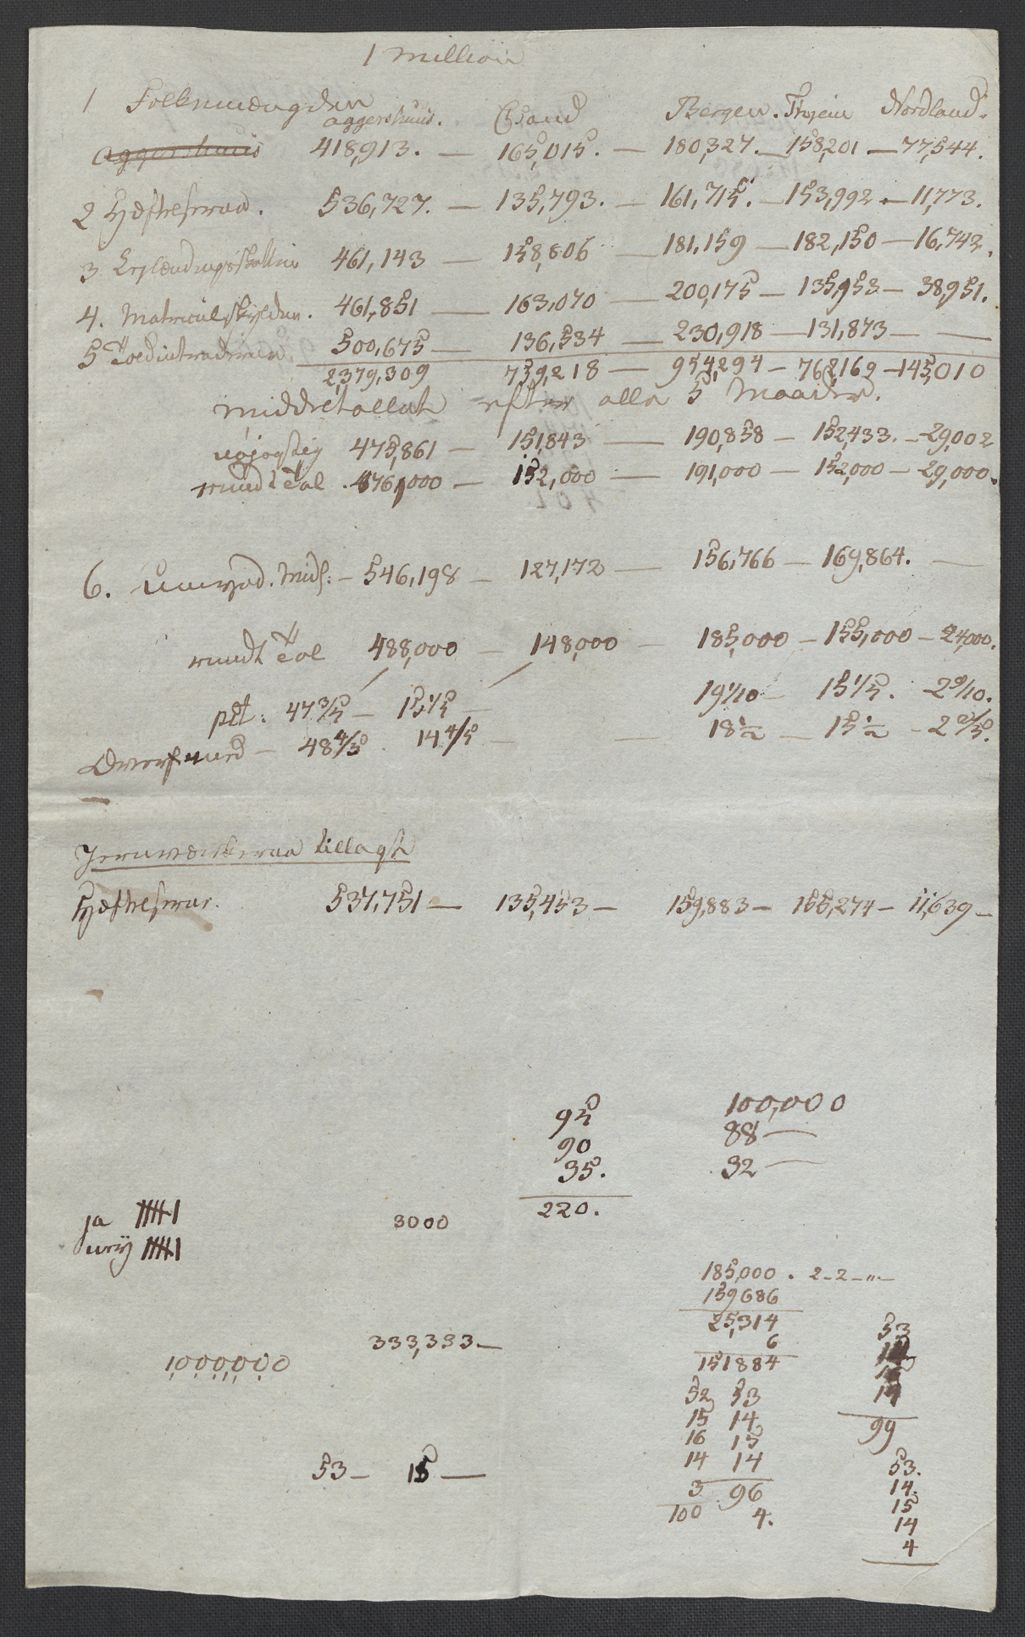 1 million
1 Folkemængden
aggershuus. Csand Bergen. Trhiem Nordland.
aggershuus 418,913. — 165,015. — 180,327. — 158,201 — 77,544.
2 Hæftesum. 536,727. — 135,793. — 161,715. — 153,992 — 11,773.
3 461,143 158,806 — 181,159 — 182,150 — 16,742.
4. Matriculskylden. 461,851 — 163,070 — 200,175 — 135,953 — 38,951.
5 Toldintraderne 500,675 — 136,534 — 230,918 — 131,873 — —
2,379,309 759,218 — 954,294 — 762,169 — 145,010
middeltallet efter alle 5 Maader.
nøjagtig 475,861 — 151,843 — 190,858 — 152,433. — 29,002
rundt Tal. 476,000 — 152,000 — 191,000 — 152,000 — 29,000.
6. Midl: — 546,198 — 127,172 — 156,766 — 169,864. —
rundt Tal 488,000 — 148,000 — 185,000 — 155,000 — 24,000.
pct: 47 3/5 — 15 1/5 — 19 1/10 — 15 1/5. 2 9/10.
48 4/5 . 14 4/5 — — 18 1/2 — 15 1/2 — 2 2/5.
tillagt
537,751 — 135,453 — 159,883 — 155,274 — 11,639 —
95 100,000
90 88 —
35. 32 —
220.
ja 𝍸 I 3000
nej 𝍸 I
185,000 . 2-2-"-
159686
25,314 53
6 14
333,333.—
1,000,000 151884 15
52 53 14
15 14 99
16 15
53 — 15 — 14 14 53.
3 96 14.
100 4. 15
14
4